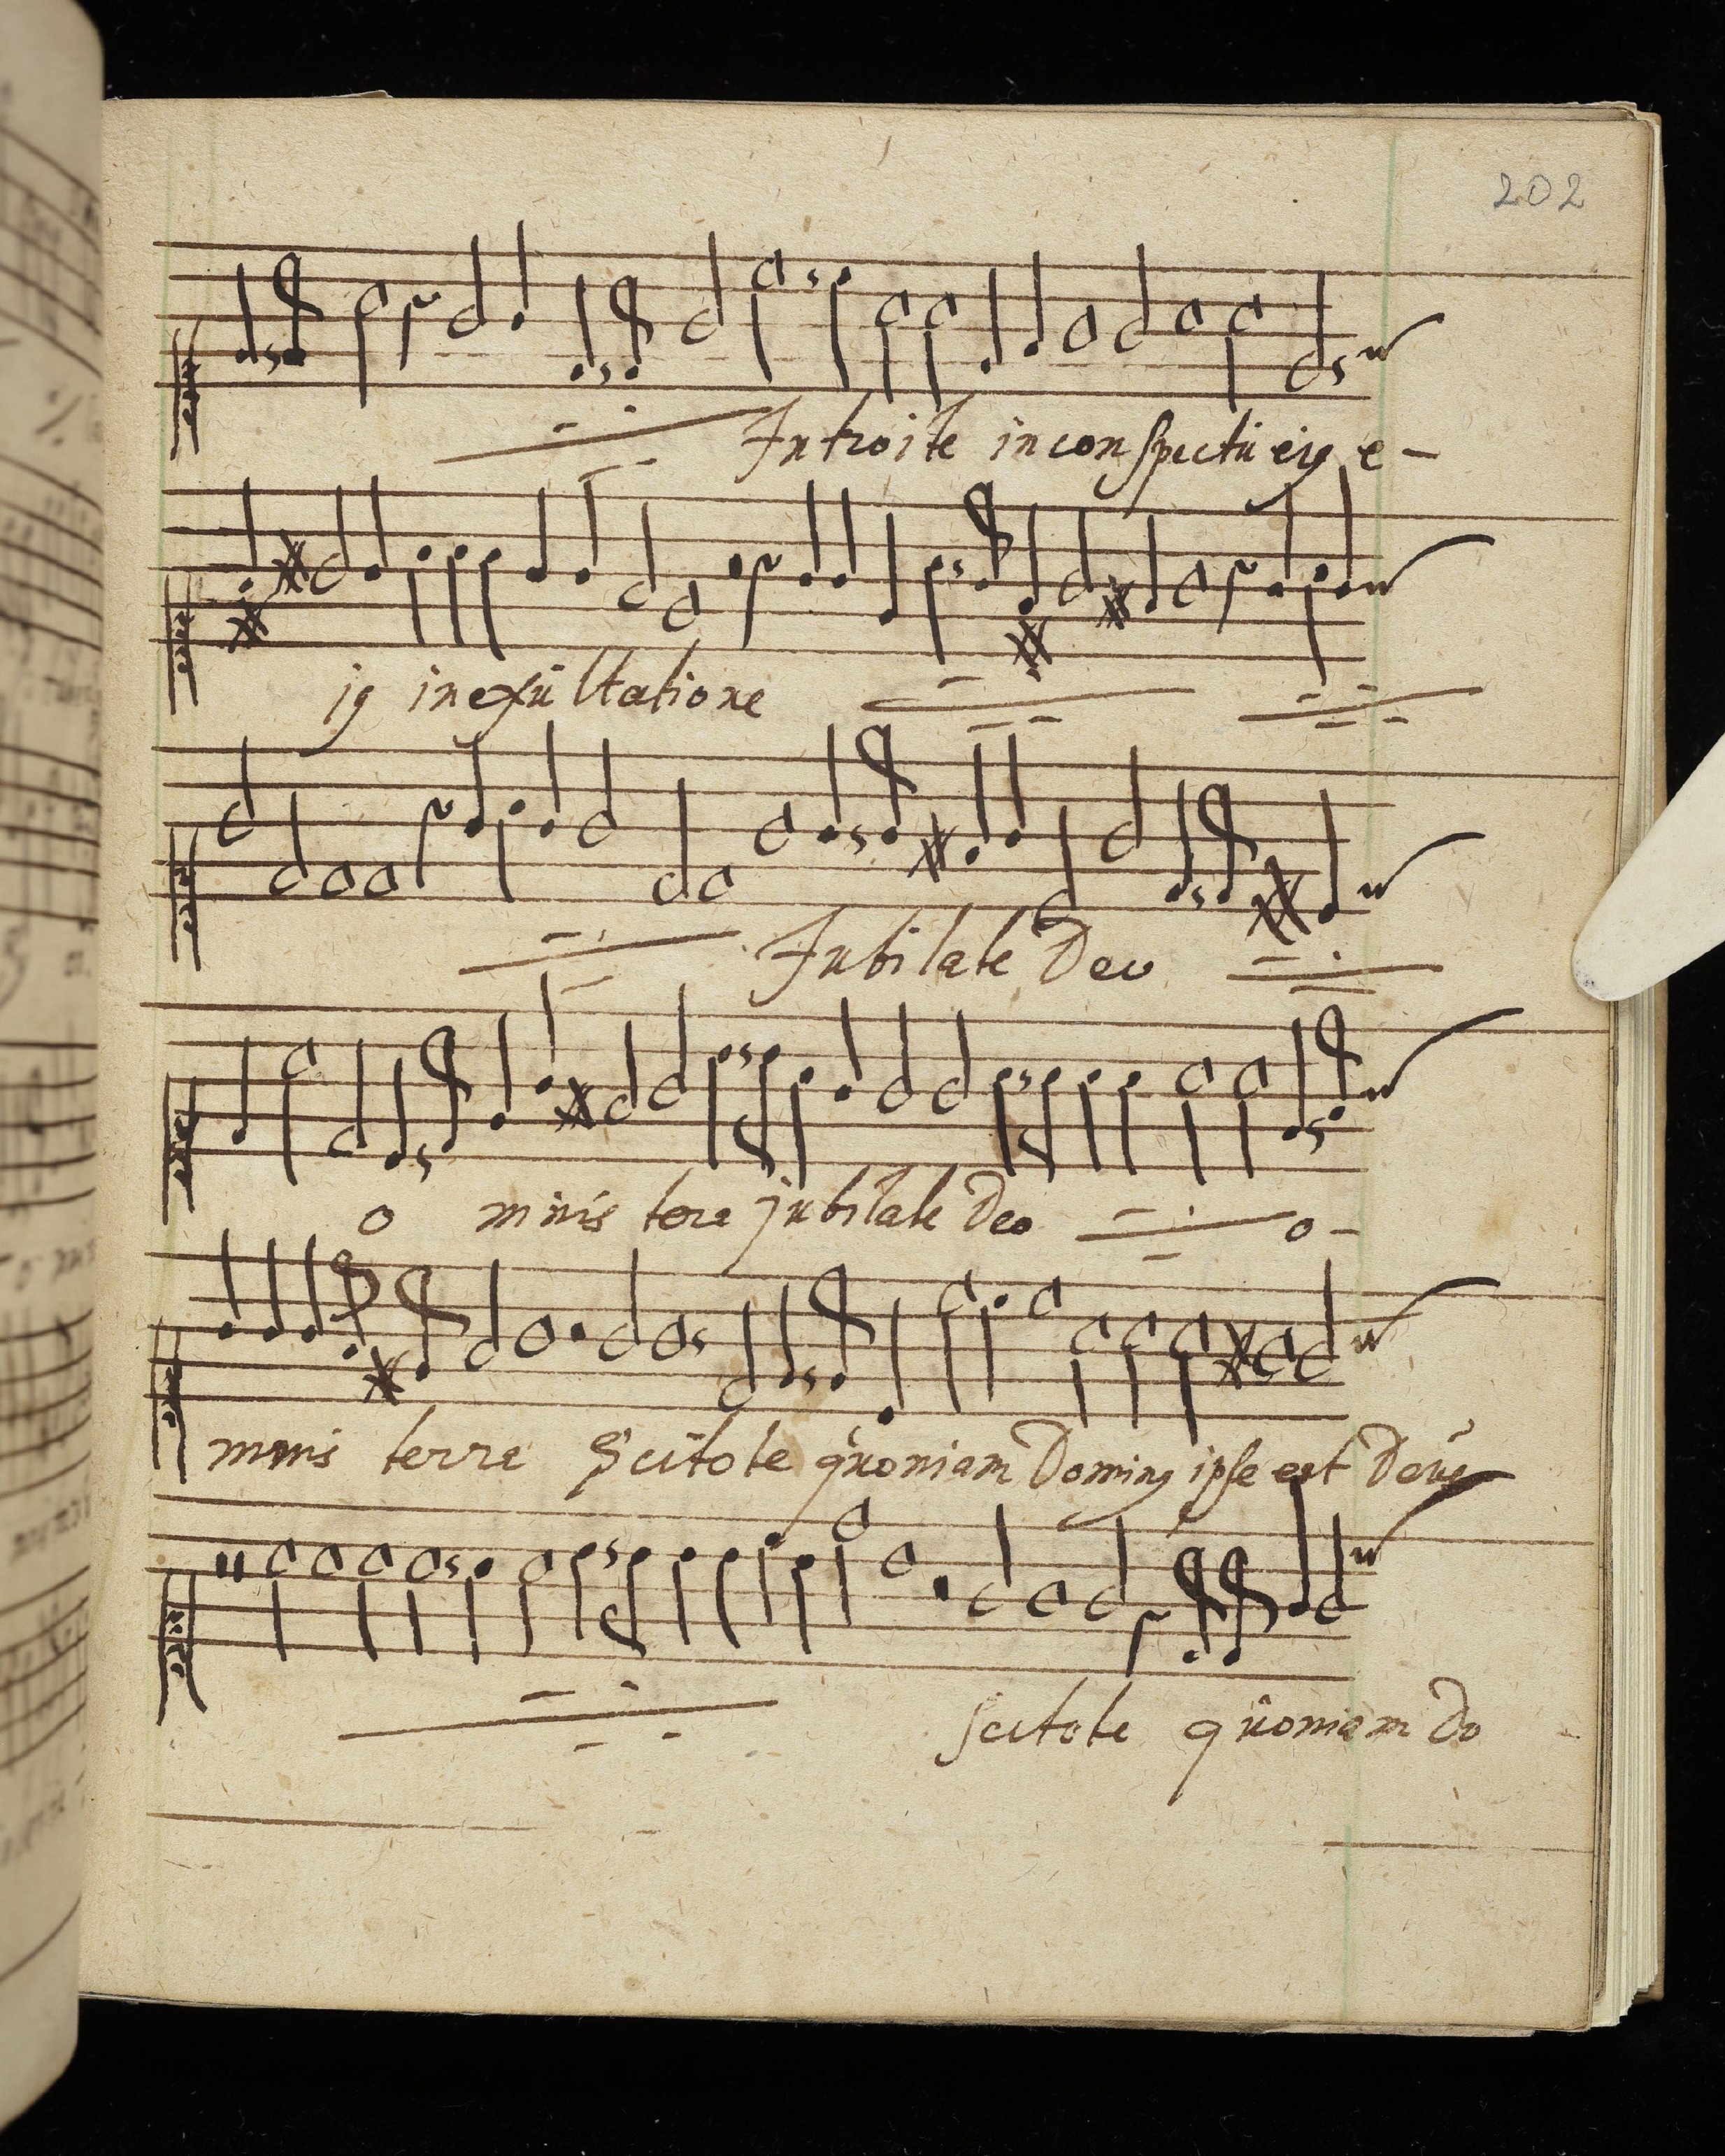 202
Introite in conspectũ eiꝯ e-
iꝯ in exũltatione
Jubilate Deo
o mnis tera jubilate Deo o-
mnis terra Scitote qũoniam Dominꝯ ipse est Deũs
scitote qũoniam Do